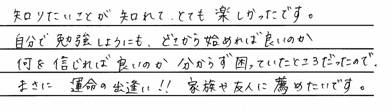 知りたいことが知れて、とても楽しかったです。
自分で勉強しようにも、どこから始めれば良いのか
何を信じれば良いのか分からず困っていたところだったので、
まさに運命の出逢い!! 家族や友人に薦めたいです。